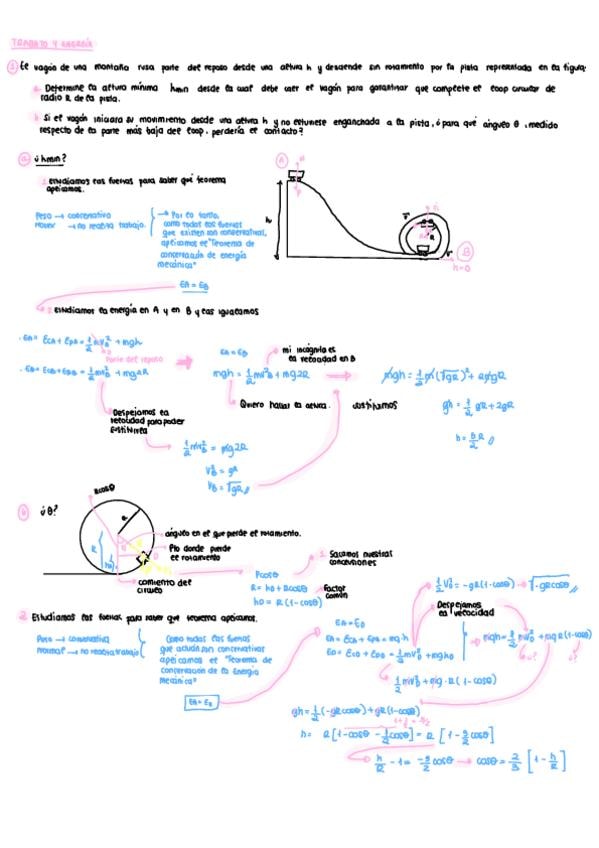 TRABAJO Y ENERGÍA
① El vagón de una montaña rusa parte del reposo desde una altura h y desciende sin rozamiento por la pista representada en la figura:
a. Determine la altura mínima hmin desde la cual debe caer el vagón para garantizar que complete el loop circular de
radio R de la pista.
b. Si el vagón iniciara su movimiento desde una altura h y no estuviese enganchada a la pista, ¿para qué ángulo θ, medido
respecto de la parte más baja del loop, perdería el contacto?
a ¿hmin?
1. Estudiamos las fuerzas para saber qué teorema
aplicamos.
Peso → conservativa
Normal → no realiza trabajo.
→ Por lo tanto,
como todas las fuerzas
que existen son conservativas,
aplicamos el "Teorema de
conservación de energía
mecánica"
EA = EB
A
h
R
B
h=0
2. Estudiamos la energía en A y en B y las igualamos
· EA = ECA + EPA = 1/2 mV²A + mgh
Parte del reposo
· EB = ECB + EPB = 1/2 mV²B + mg2R
EA = EB
mi incógnita es
la velocidad en B
mgh = 1/2 mV²B + mg2R
Quiero hallar la altura.
sustituimos
mgh = 1/2 m(√gR)² + mg2R
gh = 1/2 gR + 2gR
h = 5R/2 //
Despejamos la
velocidad para poder
sustituirla
1/2 mV²B = mg2R
V²B = gR
VB = √gR //
b ¿θ?
Rcosθ
R
R
ángulo en el que pierde el rozamiento.
Pto donde pierde
el rozamiento
comiento del
círculo
1. Sacamos nuestras
Pcosθ
R = hD + Rcosθ
hD = R(1-cosθ)
Factor
común
2. Estudiamos las fuerzas para saber que teorema aplicamos.
Peso → conservativa
normal → no realiza trabajo
Como todas las fuerzas
que actúan son conservativas
aplicamos el "Teorema de
conservación de la Energía
mecánica"
EA = ED
EA = ED
EA = ECA + EPA = mg·h
ED = ECD + EPD = 1/2 mV²D + mghD
1/2 mV²D + mg·R(1-cosθ)
1/2 V²D = -gR(1-cosθ) → √-gRcosθ //
Despejamos
la velocidad
mgh = 1/2 mV²D + mgR(1-cosθ)
gh = 1/2 (-gRcosθ) + gR(1-cosθ)
h = R[1-cosθ - 1/2 cosθ] = R[1 - 3/2 cosθ]
h/R - 1 = -3/2 cosθ → cosθ = 2/3 [1 - h/R]